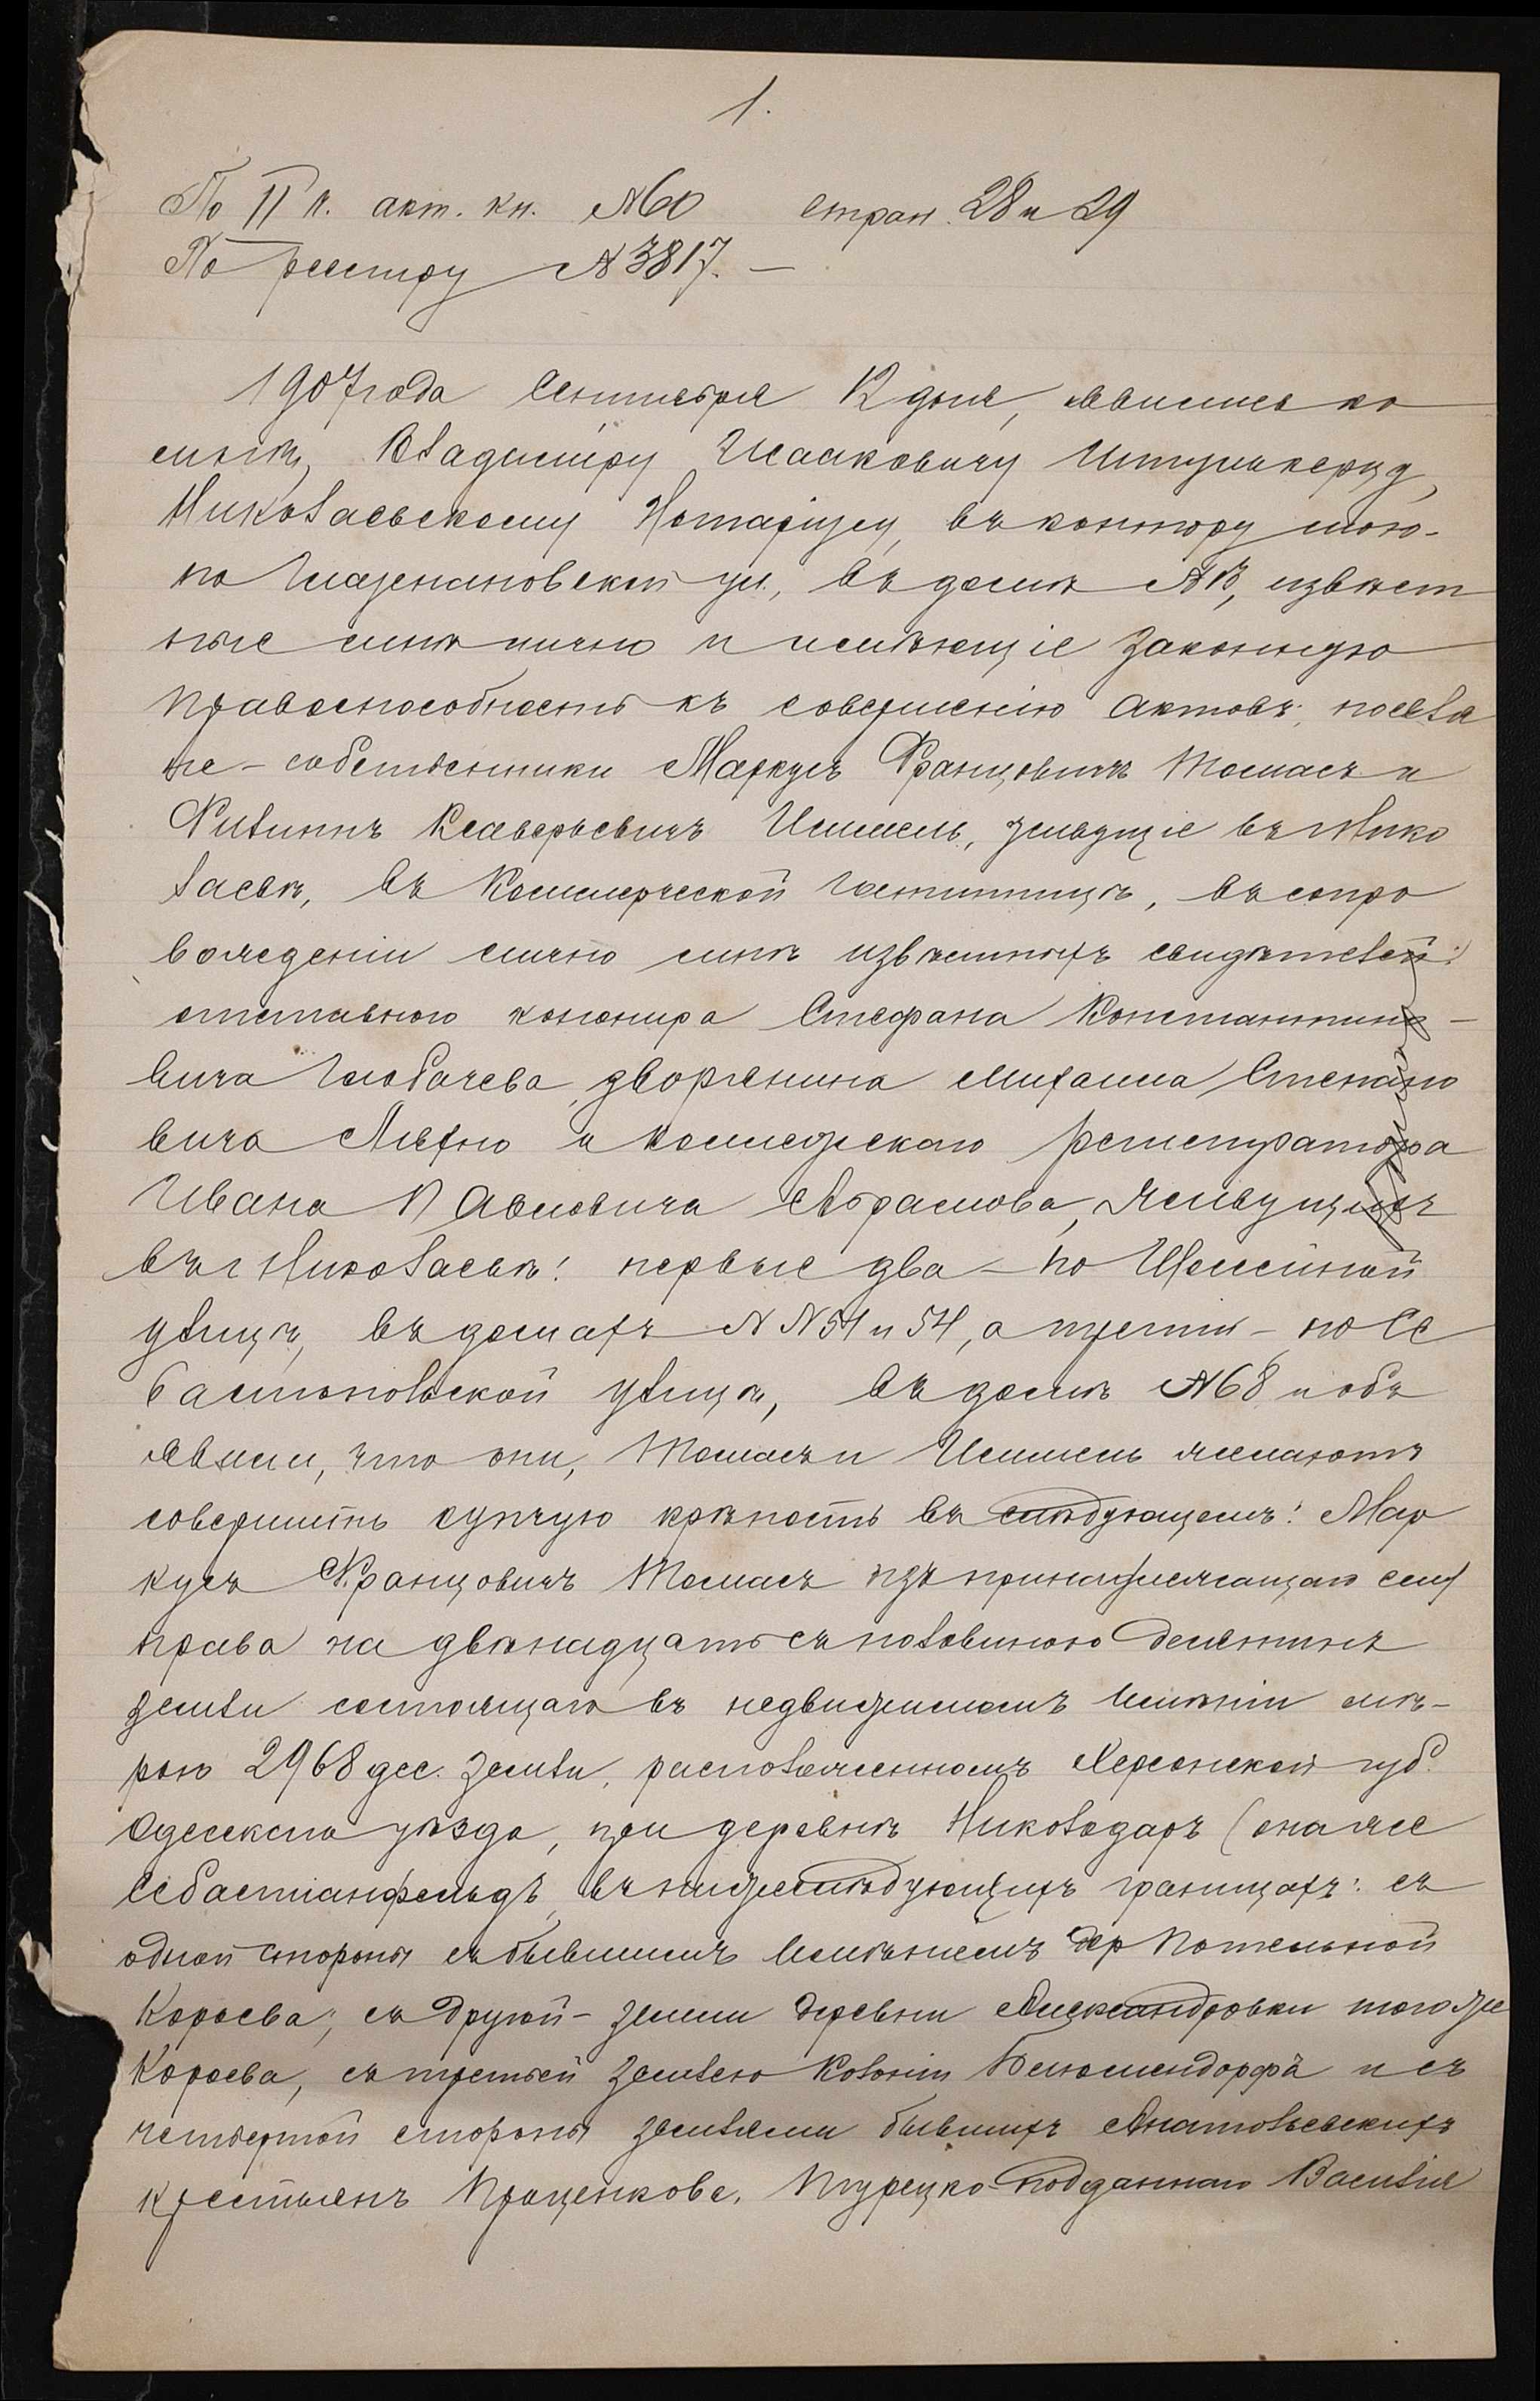 1.
По II ч. акт. кн. №60 стран. 28 и 29
По реестру №3817. —
1907 года Сентября 12 дня, явились ко
мнѣ, Владиміру Исааковичу
Николаевскому Нотаріусу, въ контору мою-
по ул., въ домѣ №13, извѣст
ные мнѣ лично и имѣющіе законную
правоспособность къ совершенію актовъ, поселя
не-собственники Маркусъ Францовичъ Томасъ и
Филиппъ Ксаверьевичъ Иммель, живущіе въ г Нико
лаевѣ, въ Коммерческой Гостинницѣ, въ сопро
вожденіи лично мнѣ извѣстныхъ свидѣтелей:
отставного юнкера Стефана Константино-
вича дворянина Михаила Степано
вича и коллежскаго регистратора
Ивана Павловича Абрамова, живущихъ
въ г Николаевѣ: первые два – по
улицѣ, въ домахъ №№ 51 и 54, а третій – по Се
бастопольской улицѣ, въ домѣ №68 и объ
явили, что они, Томасъ и Иммель желаютъ
совершить купчую крѣпость въ слѣдующемъ: Мар
кусъ Францовичъ Томасъ изъ принадлежащаго ему
права на двѣнадцать съ половиною десятинъ
земли состоящаго въ недвижимомъ имѣніи мѣ-
рою 2968 дес. земли, расположенномъ Херсонской губ.
Одесскаго уѣзда, при деревнѣ Николодаръ (она же
Себастіанфельдъ, въ нижеслѣдующихъ границахъ: съ
одной стороны съ бывшимъ имѣніемъ дер Котельной
Кораева; съ другой – земли деревни Александровки того же
Кораева, съ третьей землею колоніи Блюмендорфа и съ
четвертой стороны землями бывшихъ Анатольевскихъ
крестьянъ Проценкова, Турецко-подданнаго Василія